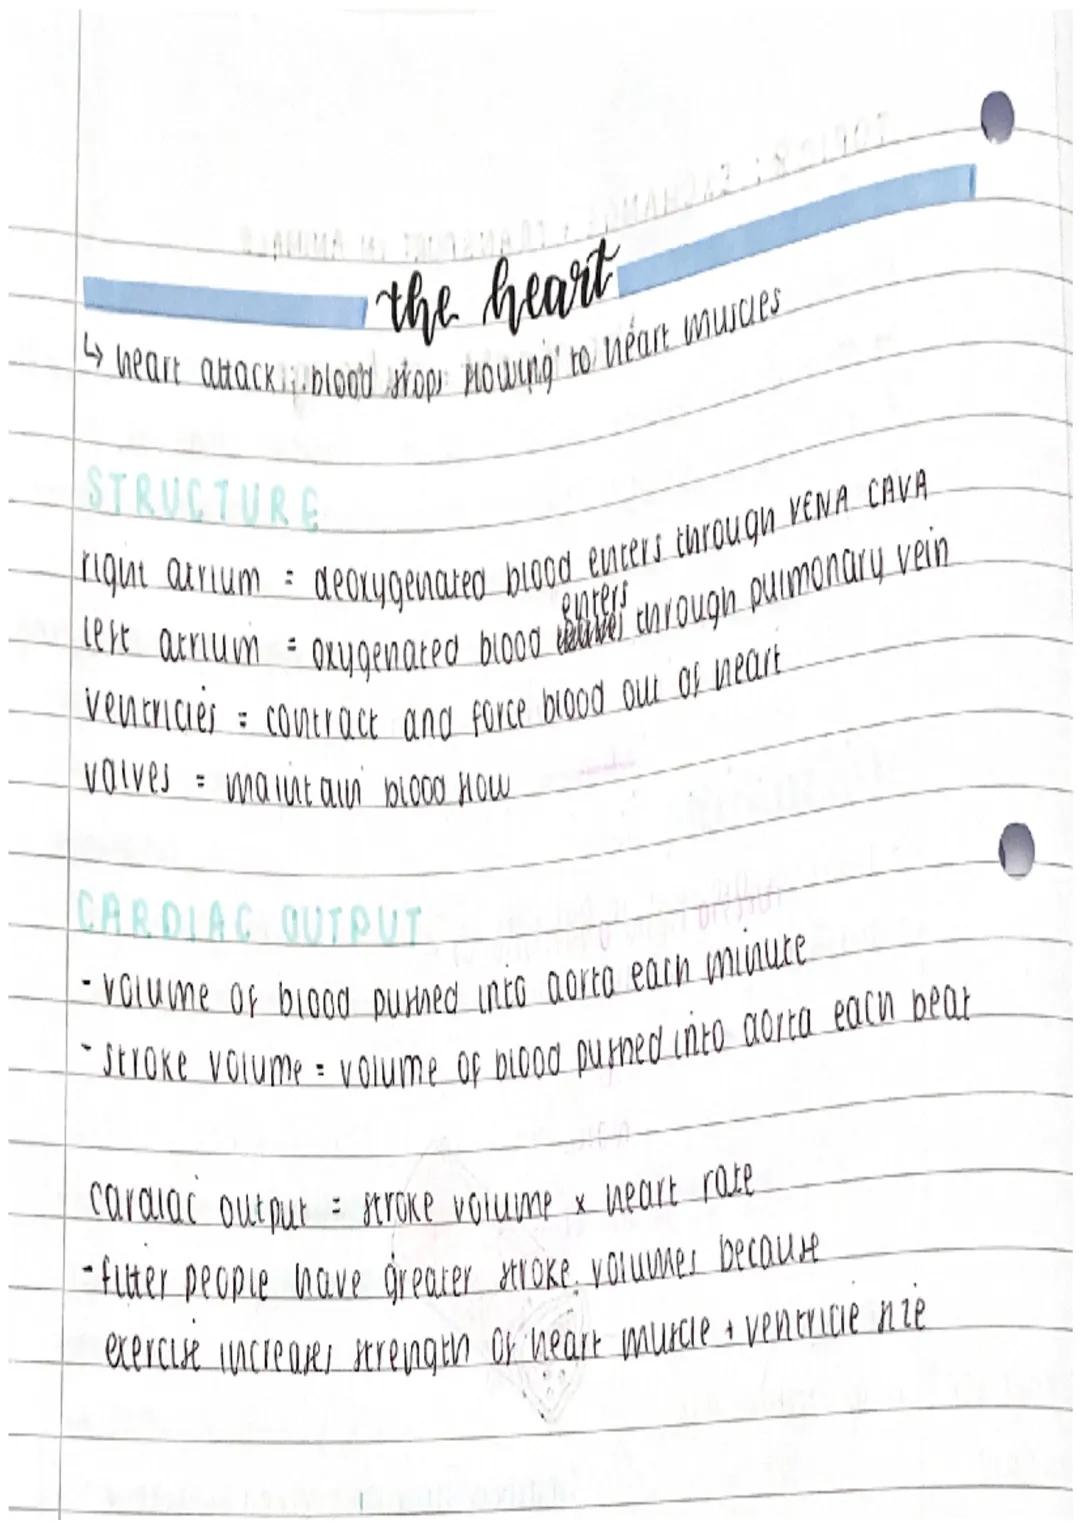 the heart
↳ heart attack: blood stops flowing to heart muscles
STRUCTURE
right atrium = deoxygenated blood enters through VENA CAVA
left atrium = oxygenated blood enters through pulmonary vein
ventricles = contract and force blood out of heart
valves = maintain blood flow
CARDIAC OUTPUT
- volume of blood pushed into aorta each minute
- stroke volume = volume of blood pushed into aorta each beat
cardiac output = stroke volume x heart rate
- fitter people have greater stroke volumes because
exercise increases strength of heart muscle + ventricle size